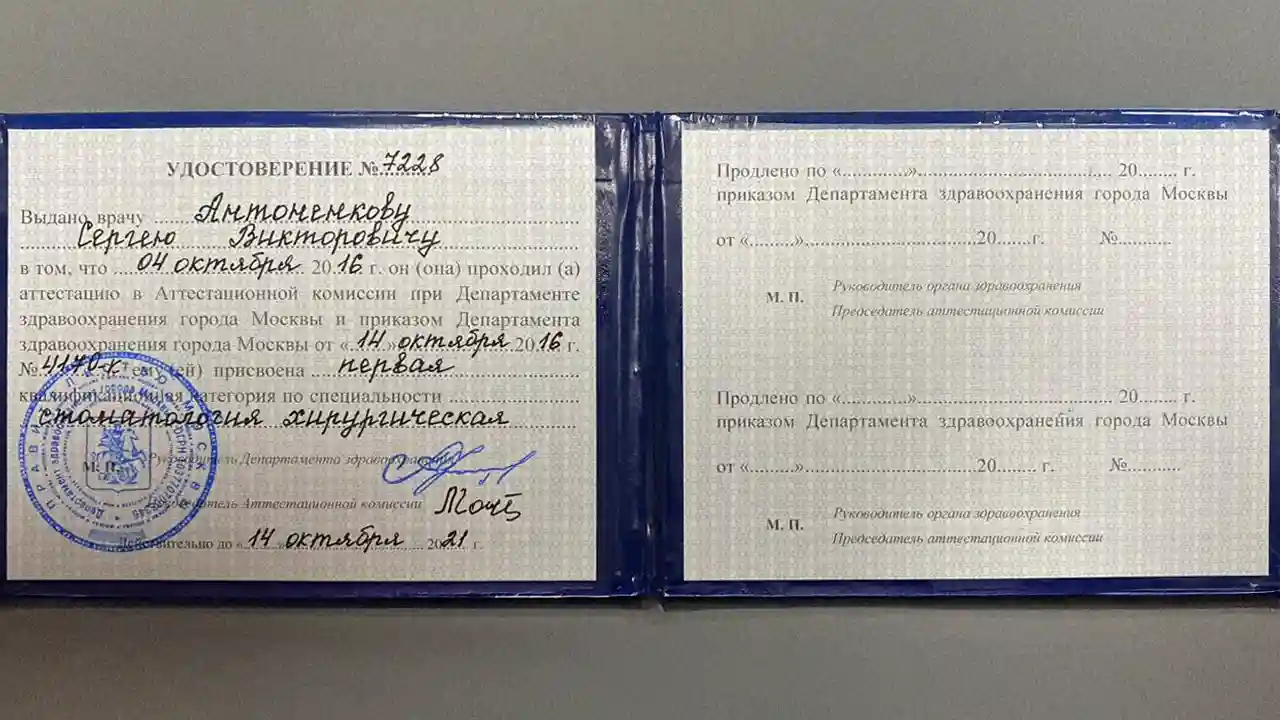 УДОСТОВЕРЕНИЕ № 7228
Выдано врачу Антоненкову
Сергею Викторовичу
в том, что 04 октября 2016 г. он (она) проходил (а)
аттестацию в Аттестационной комиссии при Департаменте
здравоохранения города Москвы и приказом Департамента
здравоохранения города Москвы от «14» октября 2016 г.
№ 4170-к ему(ей) присвоена первая
квалификационная категория по специальности
стоматология хирургическая
Руководитель Департамента здравоохранения
М. П.
Председатель Аттестационной комиссии
Действительно до «14» октября 2021 г.
Продлено по «............»........................................ 20........ г.
приказом Департамента здравоохранения города Москвы
от «.........»........................................20.......г. №...........
М. П.
Руководитель органа здравоохранения
Председатель аттестационной комиссии
Продлено по «............»........................................ 20........ г.
приказом Департамента здравоохранения города Москвы
от «.........»........................................20........ г. №...........
М. П.
Руководитель органа здравоохранения
Председатель аттестационной комиссии